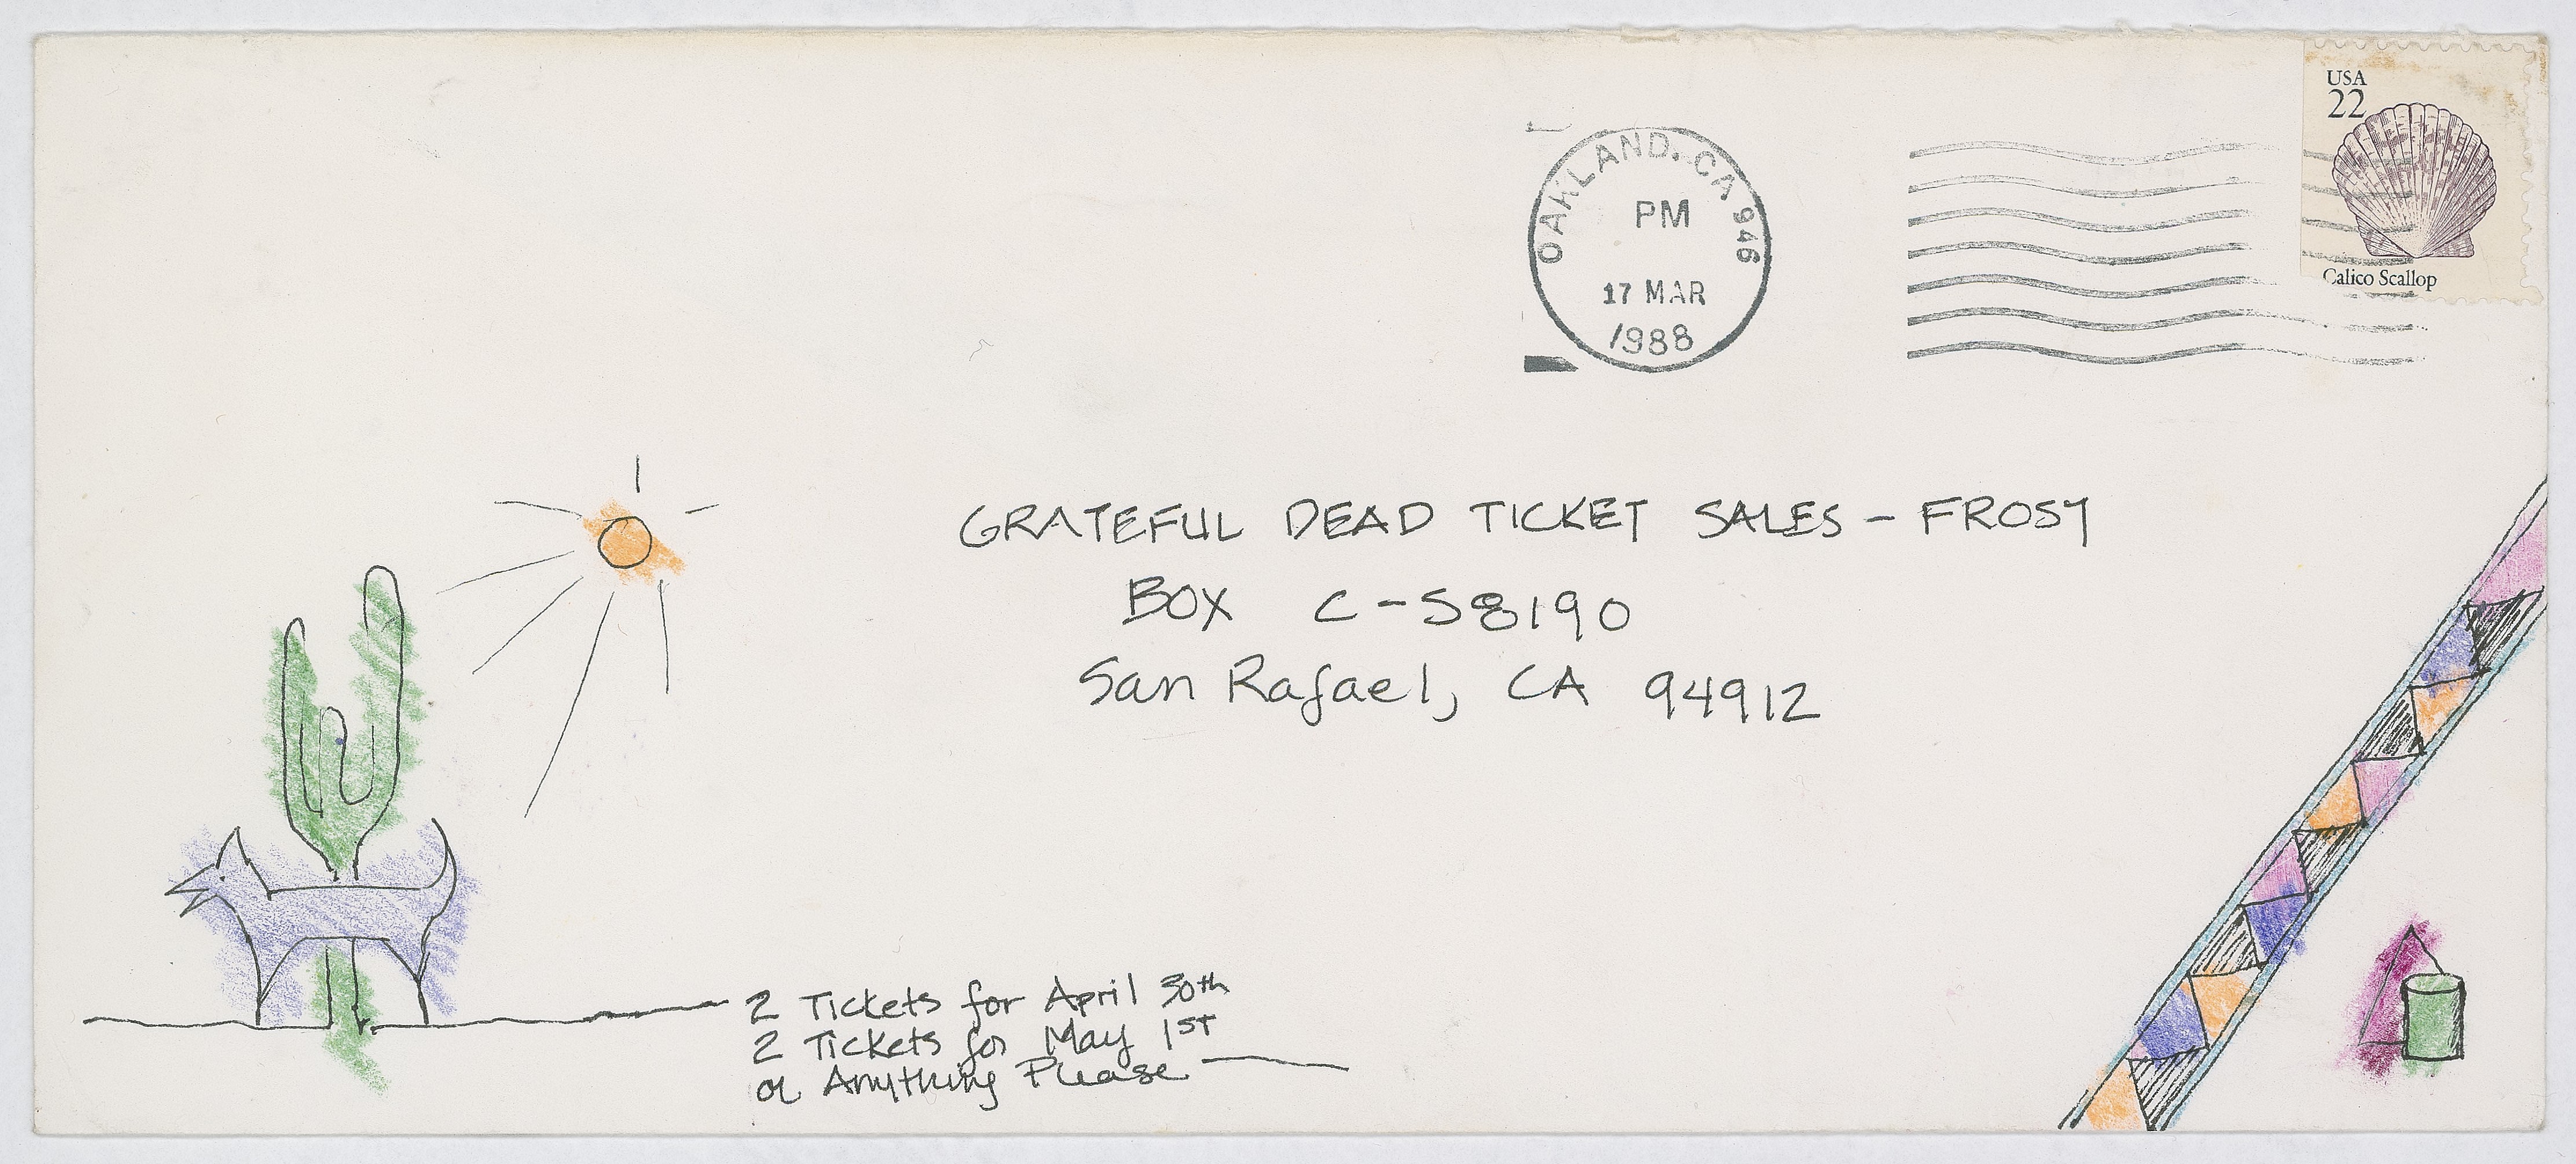 USA
22
Calico Scallop
OAKLAND, CA 946
PM
17 MAR
1988
GRATEFUL DEAD TICKET SALES - FROST
BOX C-58190
San Rafael, CA 94912
2 Tickets for April 30th
2 Tickets for May 1ST
or Anything Please